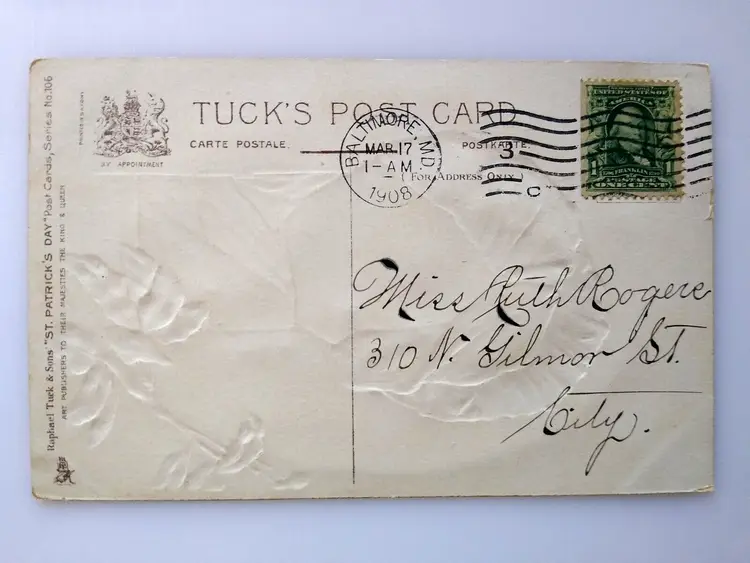 TUCK'S POST CARD
CARTE POSTALE.
POSTKARTE.
(FOR ADDRESS ONLY.)
BY APPOINTMENT
Raphael Tuck & Sons' "ST. PATRICK'S DAY" Post Cards, Series No. 106
ART PUBLISHERS TO THEIR MAJESTIES THE KING & QUEEN
BALTIMORE, MD.
MAR 17
1-AM
1908
3
C
UNITED STATES OF
AMERICA
FRANKLIN
POSTAGE
ONE CENT
Miss Ruth Rogers
310 N. Gilmor St.
City.